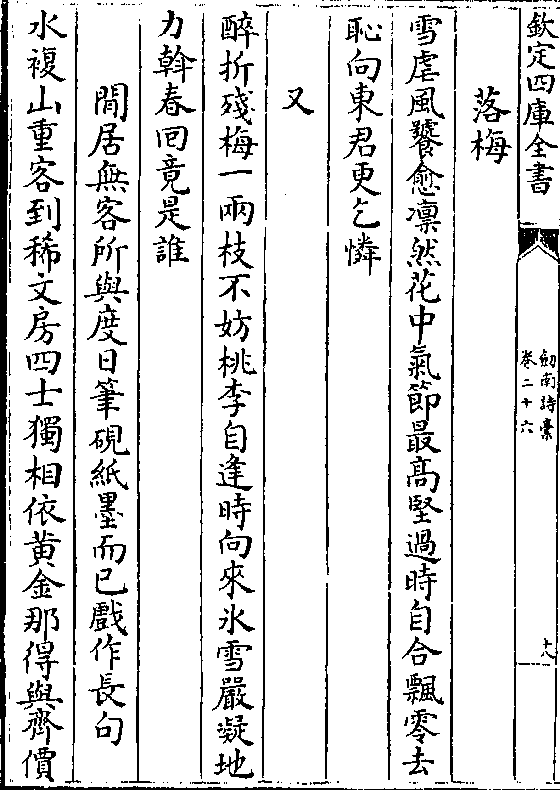 欽定四庫全書
劒南詩稾
卷二十六
十八
落梅
雪虐風饕愈凛然花中氣節最髙堅過時自合飄零去
恥向東君更乞憐
又
醉折殘梅一兩枝不妨桃李自逢時向來氷雪嚴凝地
力斡春囘竟是誰
閒居無客所與度日筆硯紙墨而已戲作長句
水複山重客到稀文房四士獨相依黄金那得與齊價